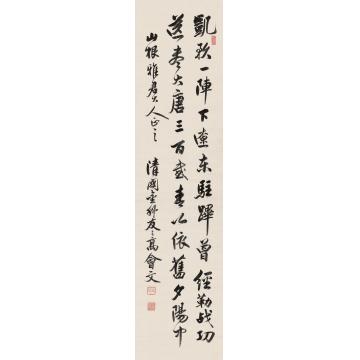 凱歌一陣下遼東駐蹕曾經勒战功
送盡大唐三百載春以依舊夕陽中
山根雅君大人正之
清國金州友高會文